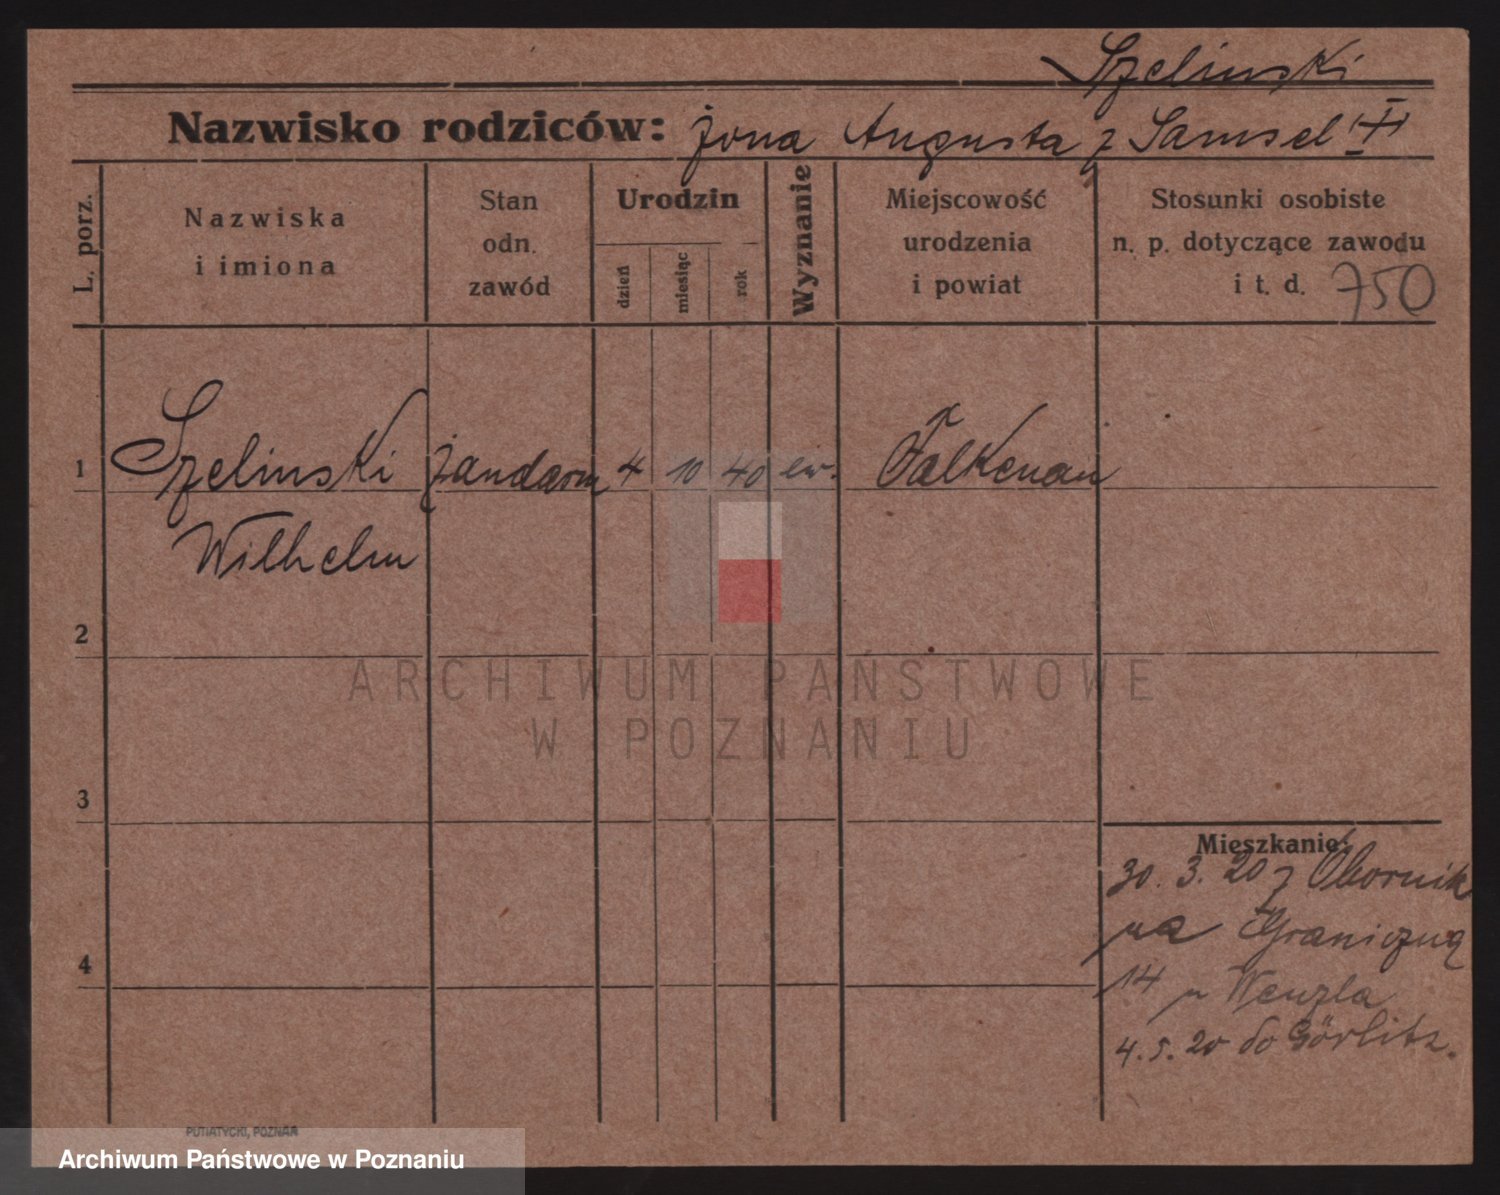 Szelinski
Nazwisko rodziców: żona Augusta z Samsel
L. porz.
Nazwiska
i imiona
Stan
odn.
zawód
Urodzin
dzień
miesiąc
rok
Wyznanie
Miejscowość
urodzenia
i powiat
Stosunki osobiste
n. p. dotyczące zawodu
i t. d. 750
1 Szelinski żandarm 4 10 40 ew. Falkenau
Wilhelm
2
3
4
Mieszkanie:
30. 3. 20 z Obornik
na Graniczną
14 u Wenzla
4. 5. 20 do Görlitz.
ARCHIWUM PAŃSTWOWE
W POZNANIU
PUTIATYCKI, POZNAŃ
Archiwum Państwowe w Poznaniu